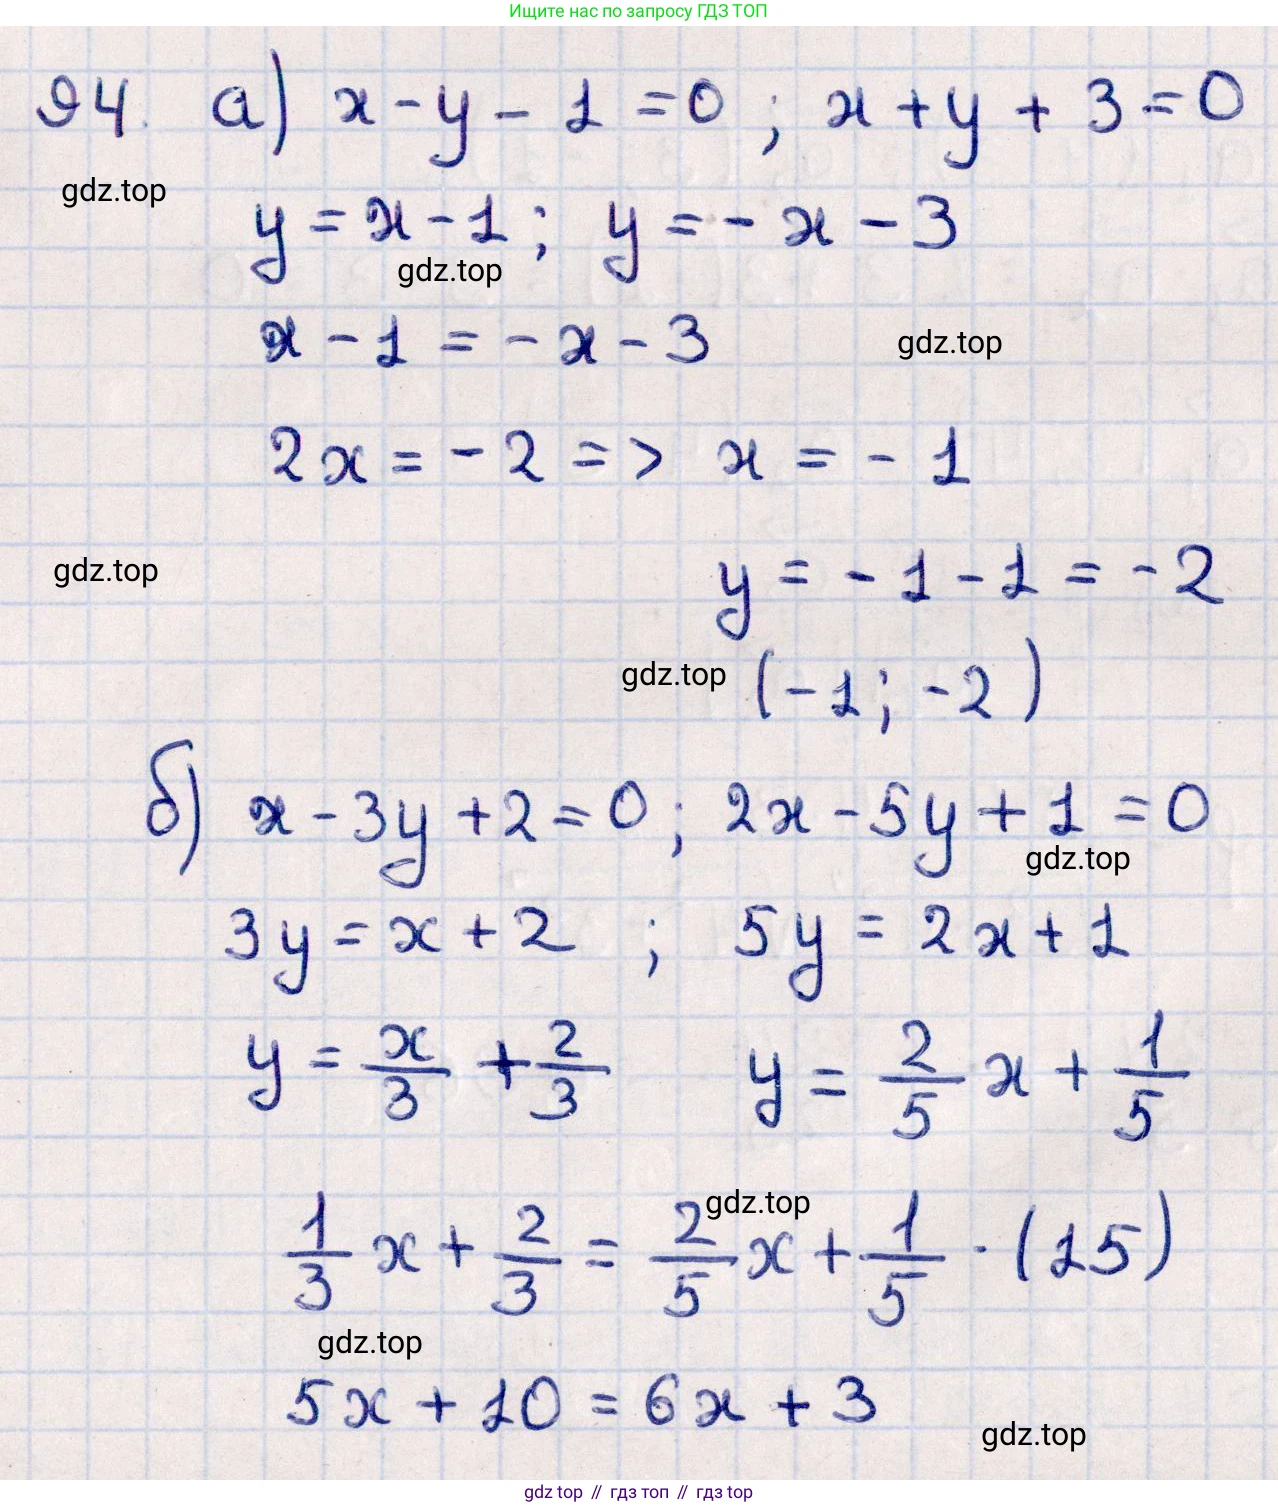 Ищите нас по запросу ГДЗ ТОП
94. а) x - y - 1 = 0 ; x + y + 3 = 0
gdz.top
y = x - 1 ; y = - x - 3
gdz.top
x - 1 = - x - 3
gdz.top
2x = - 2 => x = - 1
gdz.top
y = - 1 - 1 = - 2
gdz.top
(-1; -2)
б) x - 3y + 2 = 0 ; 2x - 5y + 1 = 0
gdz.top
3y = x + 2 ; 5y = 2x + 1
y = x/3 + 2/3 y = 2/5 x + 1/5
gdz.top
1/3 x + 2/3 = 2/5 x + 1/5 · (15)
gdz.top
5x + 10 = 6x + 3
gdz.top
gdz top // гдз топ // гдз top